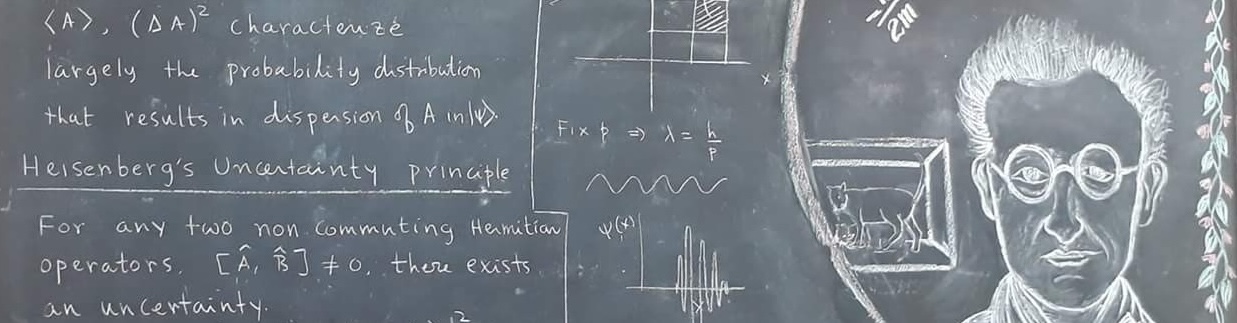 ⟨A⟩, (ΔA)² characterize
largely the probability distribution
that results in dispersion of A in |ψ⟩.
Heisenberg's Uncertainty principle
For any two non commuting Hermitian
operators, [Â, B̂] ≠ 0, there exists
an uncertainty.
x
Fix p ⇒ λ = h/p
ψ(x)
2m